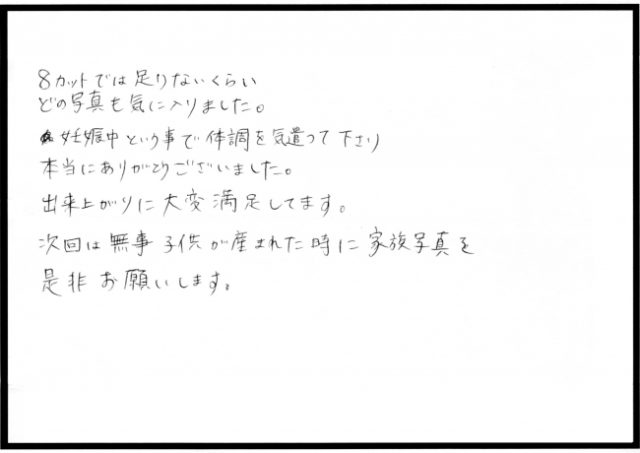 8カットでは足りないくらい
どの写真も気に入りました。
妊娠中という事で体調を気遣って下さり
本当にありがとうございました。
出来上がりに大変満足してます。
次回は無事子供が産まれた時に家族写真を
是非お願いします。